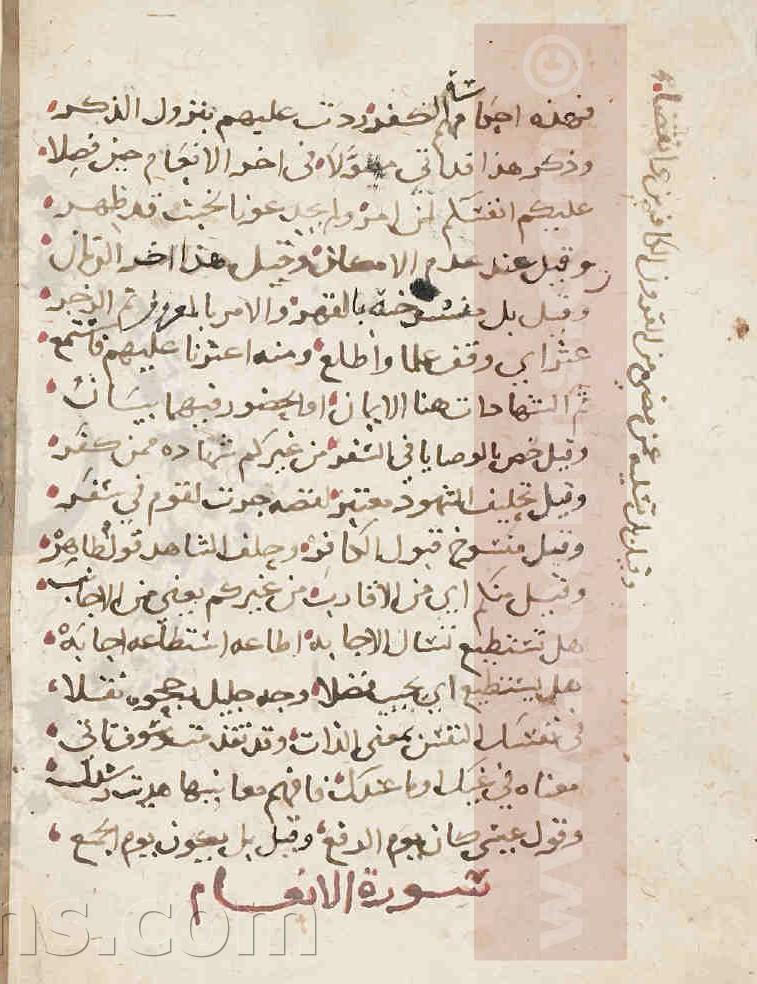 فهذه احكامهم الكفر ردت عليهم بنزول الذكر
وذكر هذا قد اتى مطولا في اخر الانعام حين فصلا
عليكم انفسكم لمن امر ولم يجد عونا بخبث قد ظهر
وقيل عند عدم الامكان وقيل هذا اخر الزمان
وقيل بل منسوخة بالقهر والامر بالمعروف ثم الزجر
عثر اي وقف علما واطلع ومنه اعثرنا عليهم فاستمع
ثم الشهادات هنا الايمان او الحضور فيهما بيان
وقيل خص بالوصايا في السفر من غيركم شهاده ممن كفر
وقيل تحليف الشهود معتبر لقصه جرت لقوم في سفر
وقيل منسوخ قبول الكافر وحلف الشاهد قول ظاهر
وقيل منكم اي من الاقارب من غيركم يعني من الاجانب
هل تستطيع تسال الاجابه اطاعه استطاعه اجابه
هل يستطيع اي يجيب فضلا وجه جليل نقلا
في نفسك النفس بمعنى الذات وقد
معناه في غيبك او عندك فافهم معانيها هديت رشدك
وقول عيسى كان يوم الرفع وقيل بل يكون يوم الجمع
سورة الانعام
وقيل بل تسليه عن مضى من القرون الكافرين
www.
ns.com
©